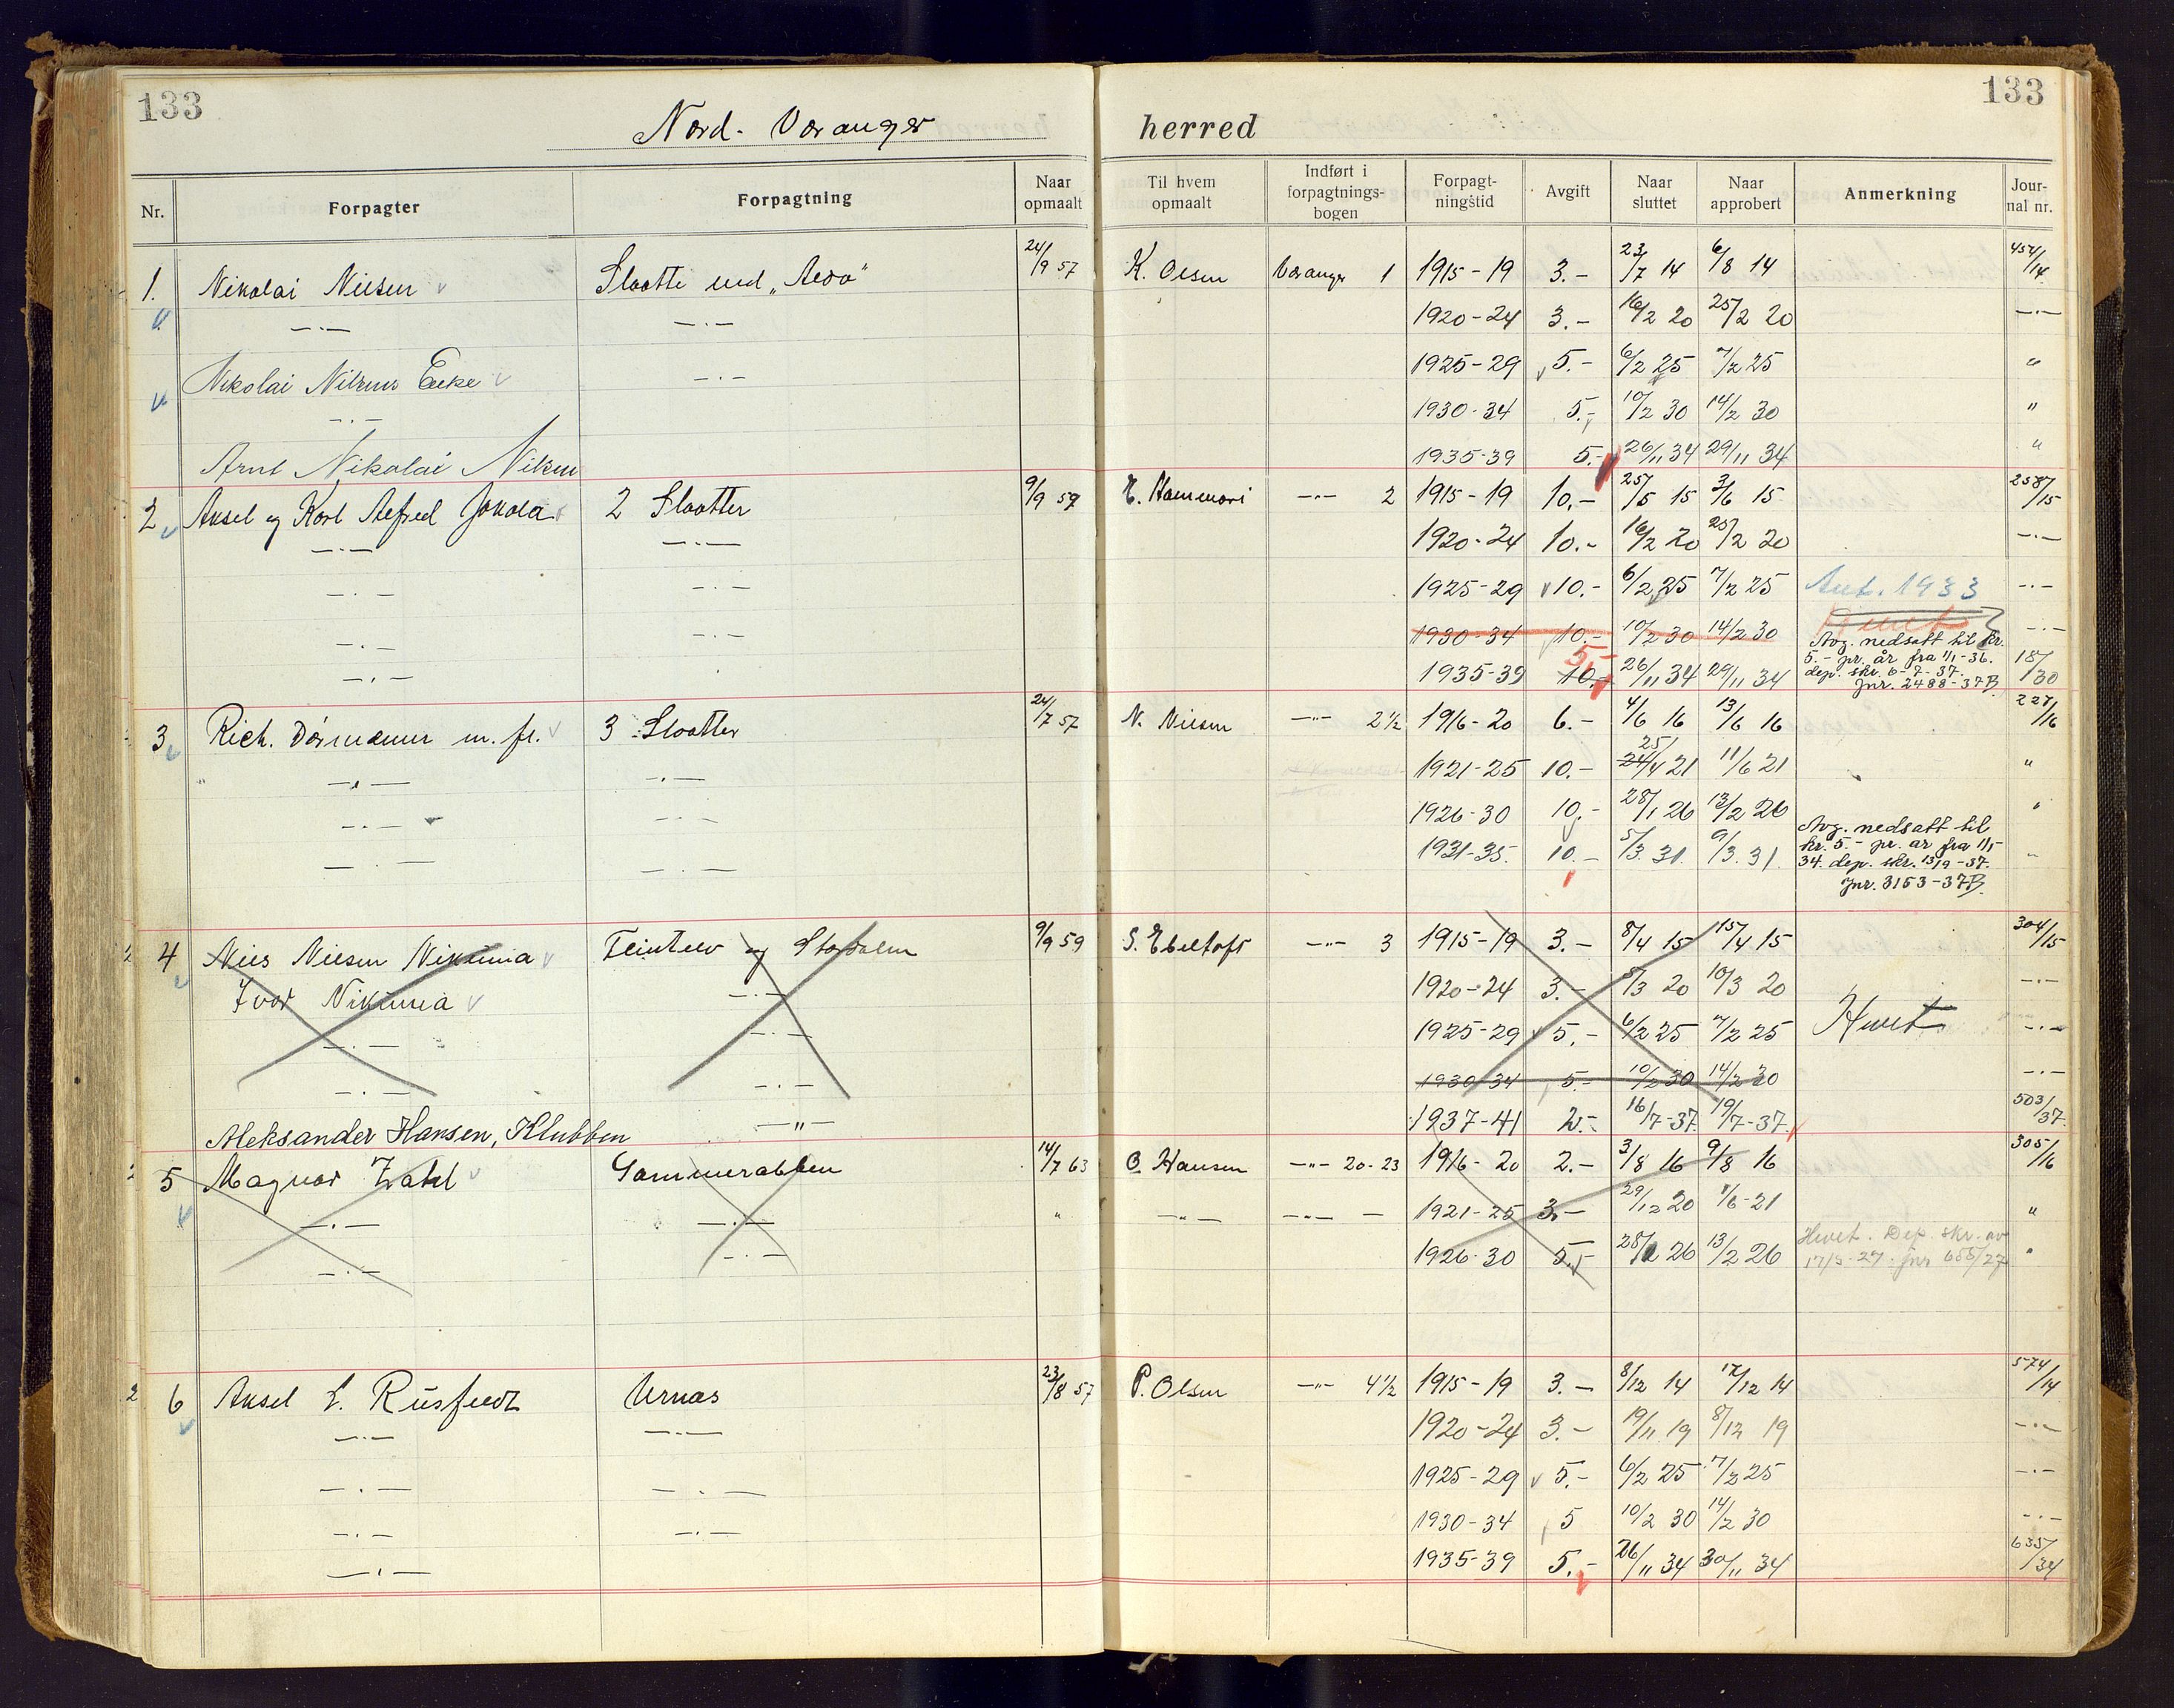 133
133
Nord- Varanger
herred
Nr.
Forpagter
Forpagtning
Naar opmaalt
Til hvem opmaalt
Indført i forpagtnings-bogen
Forpagt-ningstid
Avgift
Naar sluttet
Naar approbert
Anmerkning
Jour-nal nr.
1. Nikolai Nilsen Slaatte ved 24/9 57 K. Olsen Varanger 1 1915-19 3.- 23/7 14 6/8 14 454/14
—.— —.— 1920-24 3.- 16/2 20 25/2 20 —.—
Nikolai Nilsens Enke —.— 1925-29 5.- 6/2 25 7/2 25 "
—.— 1930-34 5.- 10/2 30 14/2 30 "
Arnt Nikolai Nilsen 1935-39 5.- 26/11 34 29/11 34 "
2 Aksel og Karl Alfred Jokola 2 Slaatter 9/9 59 E. Hammari —"— 2 1915-19 10.- 25/5 15 3/6 15 258/15
—.— —.— 1920-24 10.- 16/2 20 25/2 20 —.—
—.— —.— 1925-29 10.- 6/2 25 7/2 25 Ant. 1933 —.—
—.— —.— 1930-34 10.- 10/2 30 14/2 30 Hevet —.—
—.— 1935-39 10.- 5.- 26/11 34 29/11 34 187/30
Avg. nedsatt til kr.
5.- pr. år fra 1/1-36.
dep. skr. 6-7-37.
Jnr. 2488-37B.
3 Rich. Dørmænen m. fl. 3 Slaatter 24/7 57 N. Nilsen —"— 2 1/2 1916-20 6.- 4/6 16 13/6 16 227/16
—.— —.— 1921-25 10.- 25/4 21 11/6 21 "
—.— —.— 1926-30 10.- 28/1 26 13/2 26 "
—.— —.— 1931-35. 10.- 5/3. 31. 9/3. 31. "
Avg. nedsatt til
kr. 5.- pr. år fra 1/1-
34. dep. skr. 13/9-37.
Jnr. 3153-37B.
4 Nils Nilsen Nikunia og 9/9 59 S. Ebeltoft —"— 3 1915-19 3.- 8/4 15 15/4 15 304/15
Ivar Nikunia —.— 1920-24 3.- 8/3 20 10/3 20 —.—
—.— —.— 1925-29 5.- 6/2 25 7/2 25 Hevet —.—
—.— —.— 1930-34 5.- 10/2 30 14/2 30 —.—
Aleksander Hansen, Klubben —"— 1937-41 2.- 16/7-37 19/7-37. 503/37.
5 Magnus Zahl Gammerabben 14/7 63 O. Hansen —"— 20-23 1916-20 2.- 3/8 16 9/8 16 305/16
—.— —.— " —"— —"— — 1921-25 3.- 29/12 20 1/6-21 "
—.— —.— 1926-30 5.- 28/1 26 13/2 26 "
Hevet. Dep. skr. av
17/3-27. Jnr 655/27
6 Aksel L. Rusfeldt Urnas 23/8 57 P. Olsen —"— 4 1/2 1915-19 3.- 8/12 14 12/12 14 574/14
—.— —.— 1920-24 3.- 19/11 19 8/12 19 —.—
—.— —.— 1925-29 5.- 6/2 25 7/2 25 —.—
—.— —.— 1930-34 5 10/2 30 14/2 30 —.—
—.— 1935-39 5.- 26/11 34 30/11 34 635/34